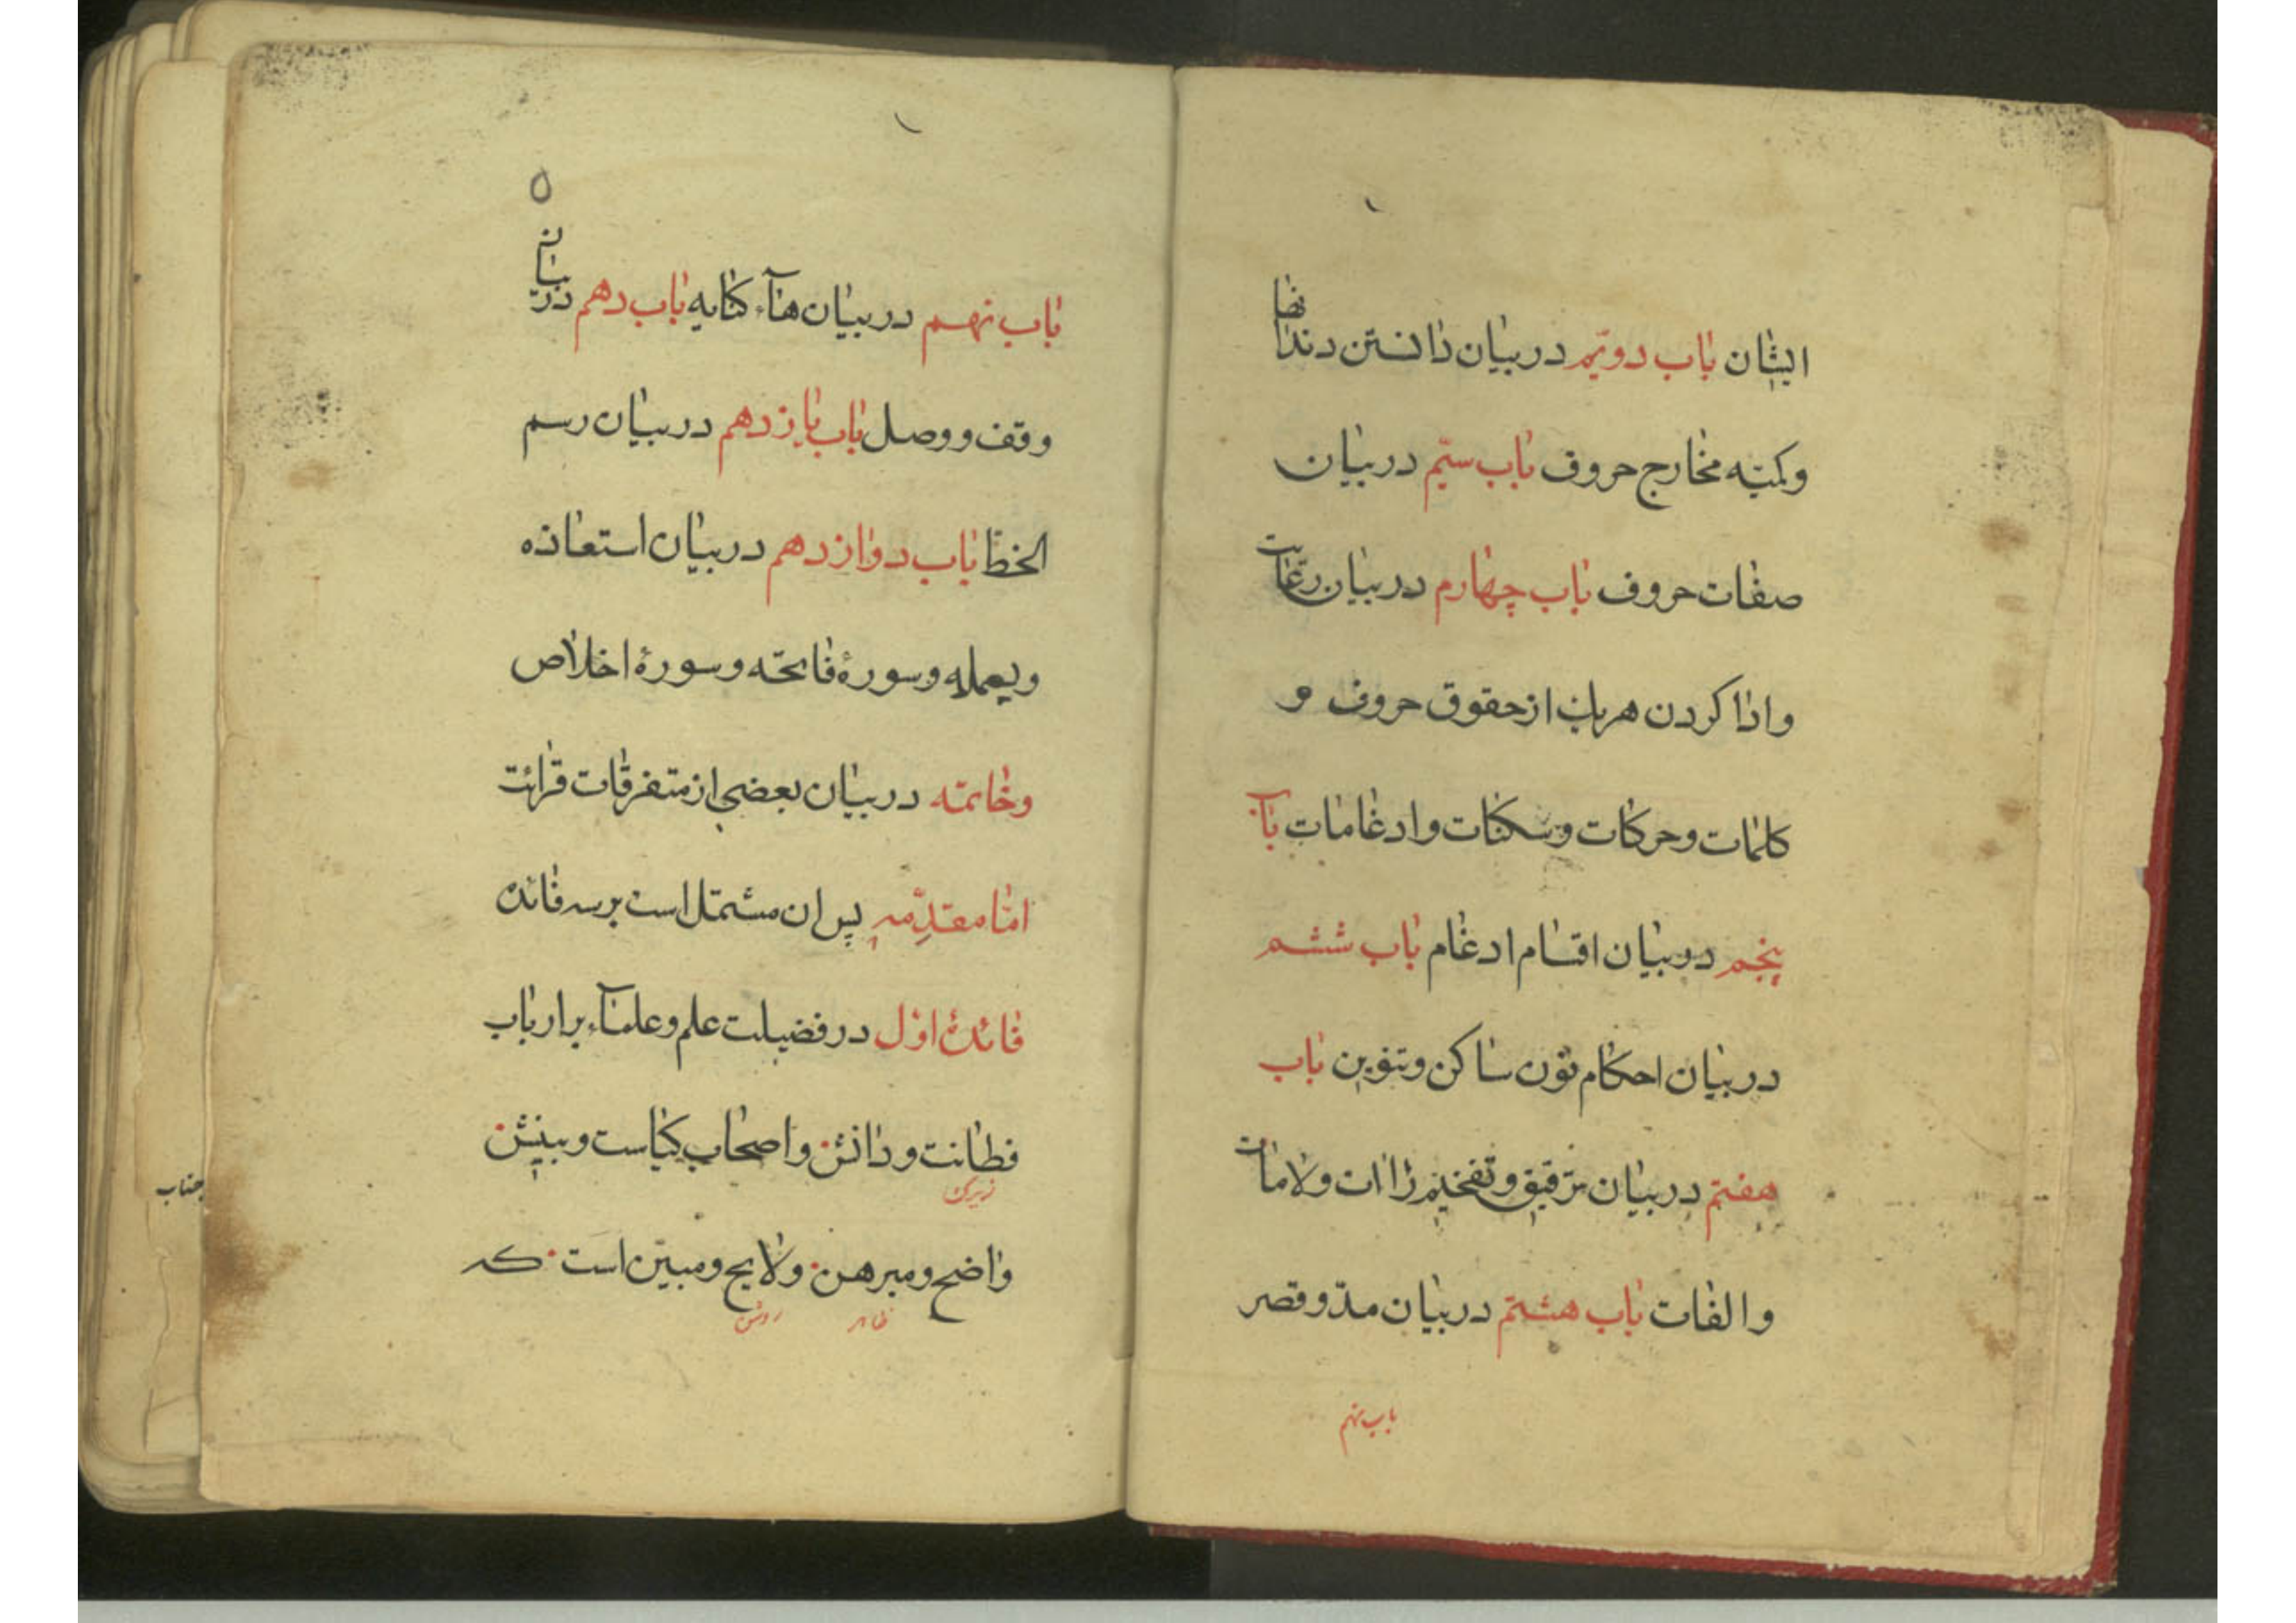 ایشان باب دویّم در بیان دانستن دندانها
وکمیّه مخارج حروف باب سیّم در بیان
صفات حروف باب چهارم در بیان رعایت
وادا کردن هریک از حقوق حروف و
کلمات و حرکات و سکنات و ادغامات باب
پنجم در بیان اقسام ادغام باب ششم
در بیان احکام نون ساکن و تنوین باب
هفتم در بیان ترقیق و تفخیم راآت و لامات
و الفات باب هشتم در بیان مدّ و قصر
باب نهم
۵
باب نهم در بیان هآء کنایه باب دهم در بیان
وقف و وصل باب یازدهم در بیان رسم
الخط باب دوازدهم در بیان استعاذه
وبسمله و سورهٔ فاتحّه و سورهٔ اخلاص
وخاتمّه در بیان بعضی از متفرقات قرائت
امّا مقدّمه پس ان مشتمل است بر سه فائده
فائدهٔ اوّل در فضیلت علم و علمآء بر ارباب
فطانت و دانش و اصحاب کیاست و بینش
زیرکی
واضح و مبرهن و لایح و مبیّن است که
ظاهر روشن
جناب